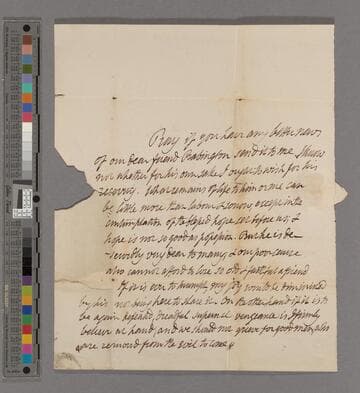 Pray if you have any better news
of our dear friend Babington send it to me I know
not whether for his own sake I ought to wish for his
recovery. What remains of life to him or me can
be little more than labour & sorrow, except in the
contemplation of the blessed hope set before us; &
hope is not so good as possession. But he is de-
servedly very dear to many, & our poor cause
also cannot afford to lose so old & faithful a friend
If it is ever to triumph, my joy would be diminished
by his not being here to share it. On the other hand if it is to
be again defeated, dreadful supernal vengeance is I firmly
believe at hand, and we should not grieve for good men who
are removed from the evil to come